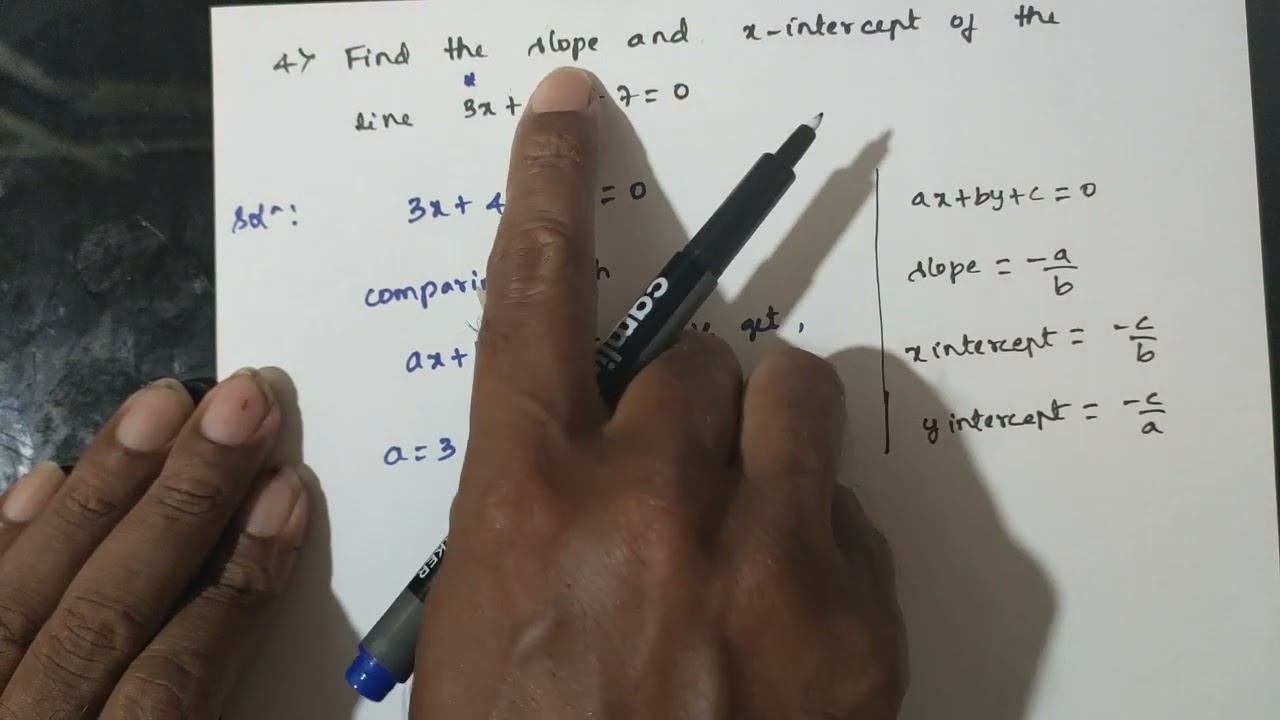 4) Find the slope and x-intercept of the
line 3x + - 7 = 0
Solⁿ: 3x + 4 = 0
ax + get,
a = 3
ax+by+c = 0
slope = -a/b
x intercept = -c/b
y intercept = -c/a